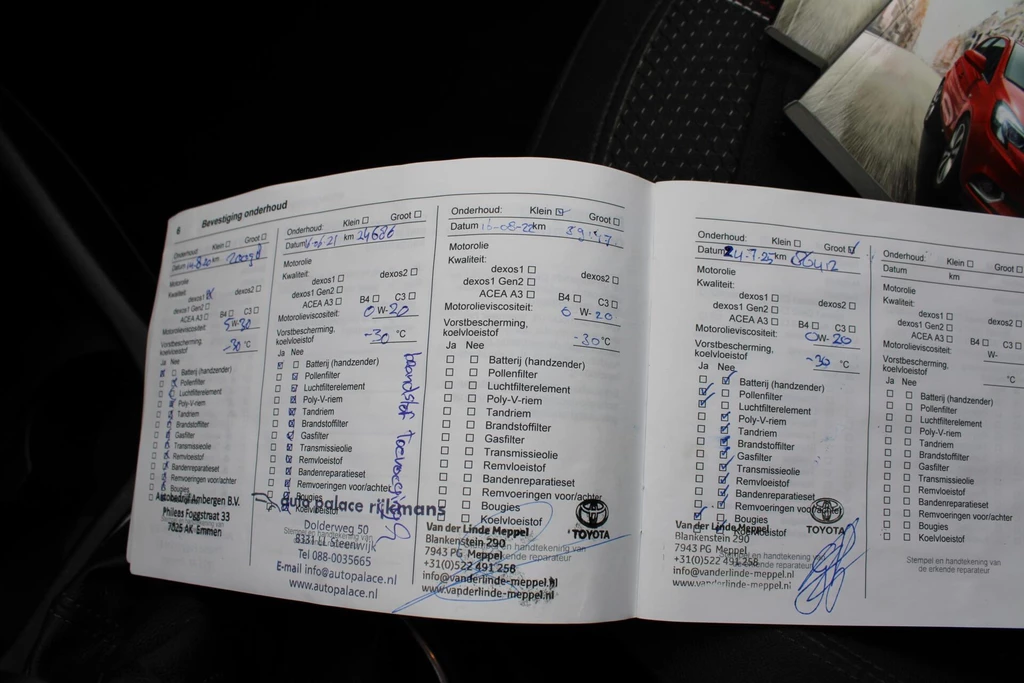 6 Bevestiging onderhoud
Onderhoud: Klein ☐ Groot ☐
Datum km
Motorolie
Kwaliteit:
dexos1 dexos2 ☐
dexos1 Gen2 ☐
ACEA A3 ☐ B4 ☐ C3 ☐
Motorolieviscositeit: 5W-30
Vorstbescherming,
koelvloeistof -30 °C
Ja Nee
Batterij (handzender)
Pollenfilter
Luchtfilterelement
Poly-V-riem
Tandriem
Brandstoffilter
Gasfilter
Transmissieolie
Remvloeistof
Bandenreparatieset
Remvoeringen voor/achter
Bougies
Autobedrijf Ambergen B.V.
Phileas Foggstraat 33
7825 AK Emmen
Onderhoud: Klein ☐ Groot ☐
Datum km 24686
Motorolie
Kwaliteit:
dexos1 ☐ dexos2 ☐
dexos1 Gen2 ☐
ACEA A3 ☐ B4 ☐ C3 ☐
Motorolieviscositeit: 0W-20
Vorstbescherming,
koelvloeistof -30 °C
Ja Nee
Batterij (handzender)
Pollenfilter
Luchtfilterelement
Poly-V-riem
Tandriem
Brandstoffilter
Gasfilter
Transmissieolie
Remvloeistof
Bandenreparatieset
Remvoeringen voor/achter
Bougies
Koelvloeistof
brandstof toevoeging
auto palace rijkmans
Dolderweg 50
8331 LL Steenwijk
Tel 088-0035665
E-mail info@autopalace.nl
www.autopalace.nl
Onderhoud: Klein ☑ Groot ☐
Datum 16-08-22 km
Motorolie
Kwaliteit:
dexos1 ☐ dexos2 ☐
dexos1 Gen2 ☐
ACEA A3 ☐ B4 ☐ C3 ☐
Motorolieviscositeit: 0W-20
Vorstbescherming,
koelvloeistof -30 °C
Ja Nee
Batterij (handzender)
Pollenfilter
Luchtfilterelement
Poly-V-riem
Tandriem
Brandstoffilter
Gasfilter
Transmissieolie
Remvloeistof
Bandenreparatieset
Remvoeringen voor/achter
Bougies
Koelvloeistof
Van der Linde Meppel
Blankenstein 290
7943 PG Meppel
+31(0)522 491 258
info@vanderlinde-meppel.nl
www.vanderlinde-meppel.nl
TOYOTA
Onderhoud: Klein ☐ Groot ☑
Datum km
Motorolie
Kwaliteit:
dexos1 ☐ dexos2 ☐
dexos1 Gen2 ☐
ACEA A3 ☐ B4 ☐ C3 ☐
Motorolieviscositeit: 0W-20
Vorstbescherming,
koelvloeistof -30 °C
Ja Nee
Batterij (handzender)
Pollenfilter
Luchtfilterelement
Poly-V-riem
Tandriem
Brandstoffilter
Gasfilter
Transmissieolie
Remvloeistof
Bandenreparatieset
Remvoeringen voor/achter
Bougies
Koelvloeistof
Van der Linde Meppel
Blankenstein 290
7943 PG Meppel
+31(0)522 491 258
info@vanderlinde-meppel.nl
www.vanderlinde-meppel.nl
TOYOTA
Onderhoud: Klein ☐ Groot ☐
Datum km
Motorolie
Kwaliteit:
dexos1 ☐ dexos2 ☐
dexos1 Gen2 ☐
ACEA A3 ☐ B4 ☐ C3 ☐
Motorolieviscositeit: W-
Vorstbescherming,
koelvloeistof °C
Ja Nee
Batterij (handzender)
Pollenfilter
Luchtfilterelement
Poly-V-riem
Tandriem
Brandstoffilter
Gasfilter
Transmissieolie
Remvloeistof
Bandenreparatieset
Remvoeringen voor/achter
Bougies
Koelvloeistof
Stempel en handtekening van
de erkende reparateur